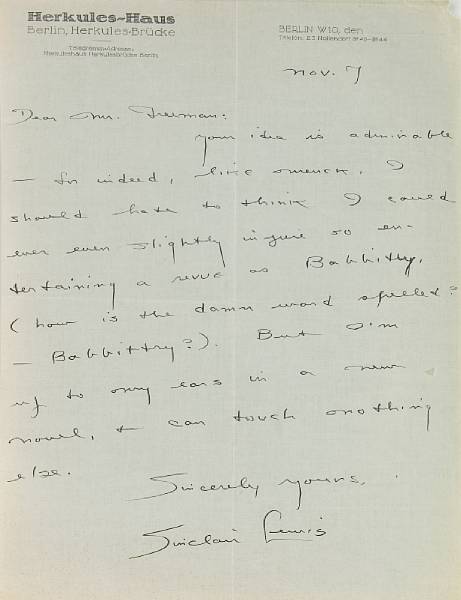 Herkules-Haus
Berlin, Herkules-Brücke
Telegramm-Adresse:
Herkuleshaus Herkulesbrücke Berlin
BERLIN W10, den
Nov. 7
Dear Mr. Freeman:
Your idea is admirable
— for indeed, like Mencken, I
should hate to think I could
ever even slightly injure so en-
tertaining a revue as Babbitty,
(how is the damn word spelled?
— Babbittry?). But I'm
up to my ears in a new
novel, & can touch nothing
else.
Sincerely yours,
Sinclair Lewis